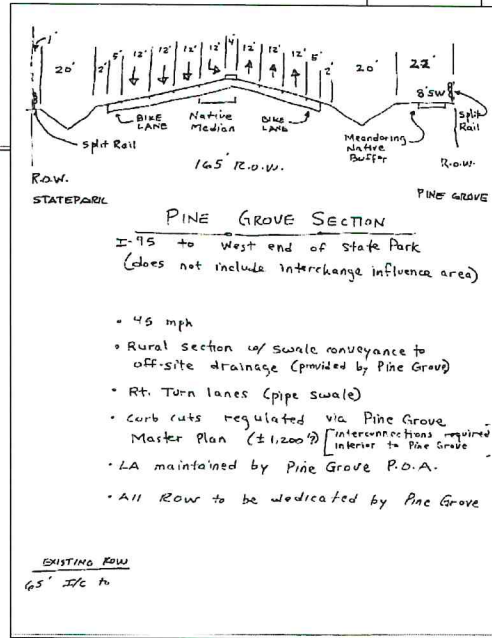 1'
20' 2' 5' 12' 12' 12' 12' 4' 12' 12' 12' 5' 2' 20' 22'
8' SW
Split Rail
BIKE LANE
Native Median
BIKE LANE
Meandering Native Buffer
Split Rail
R.O.W.
165' R.O.W.
R.O.W.
STATE PARK
PINE GROVE
PINE GROVE SECTION
I-95 to West end of State Park
(does not include interchange influence area)
• 45 mph
• Rural section w/ swale conveyance to
off-site drainage (provided by Pine Grove)
• Rt. Turn lanes (pipe swale)
• Curb cuts regulated via Pine Grove
Master Plan (± 1,200'?) [interconnections required
interior to Pine Grove
• LA maintained by Pine Grove P.O.A.
• All ROW to be dedicated by Pine Grove
EXISTING ROW
65' I/C to